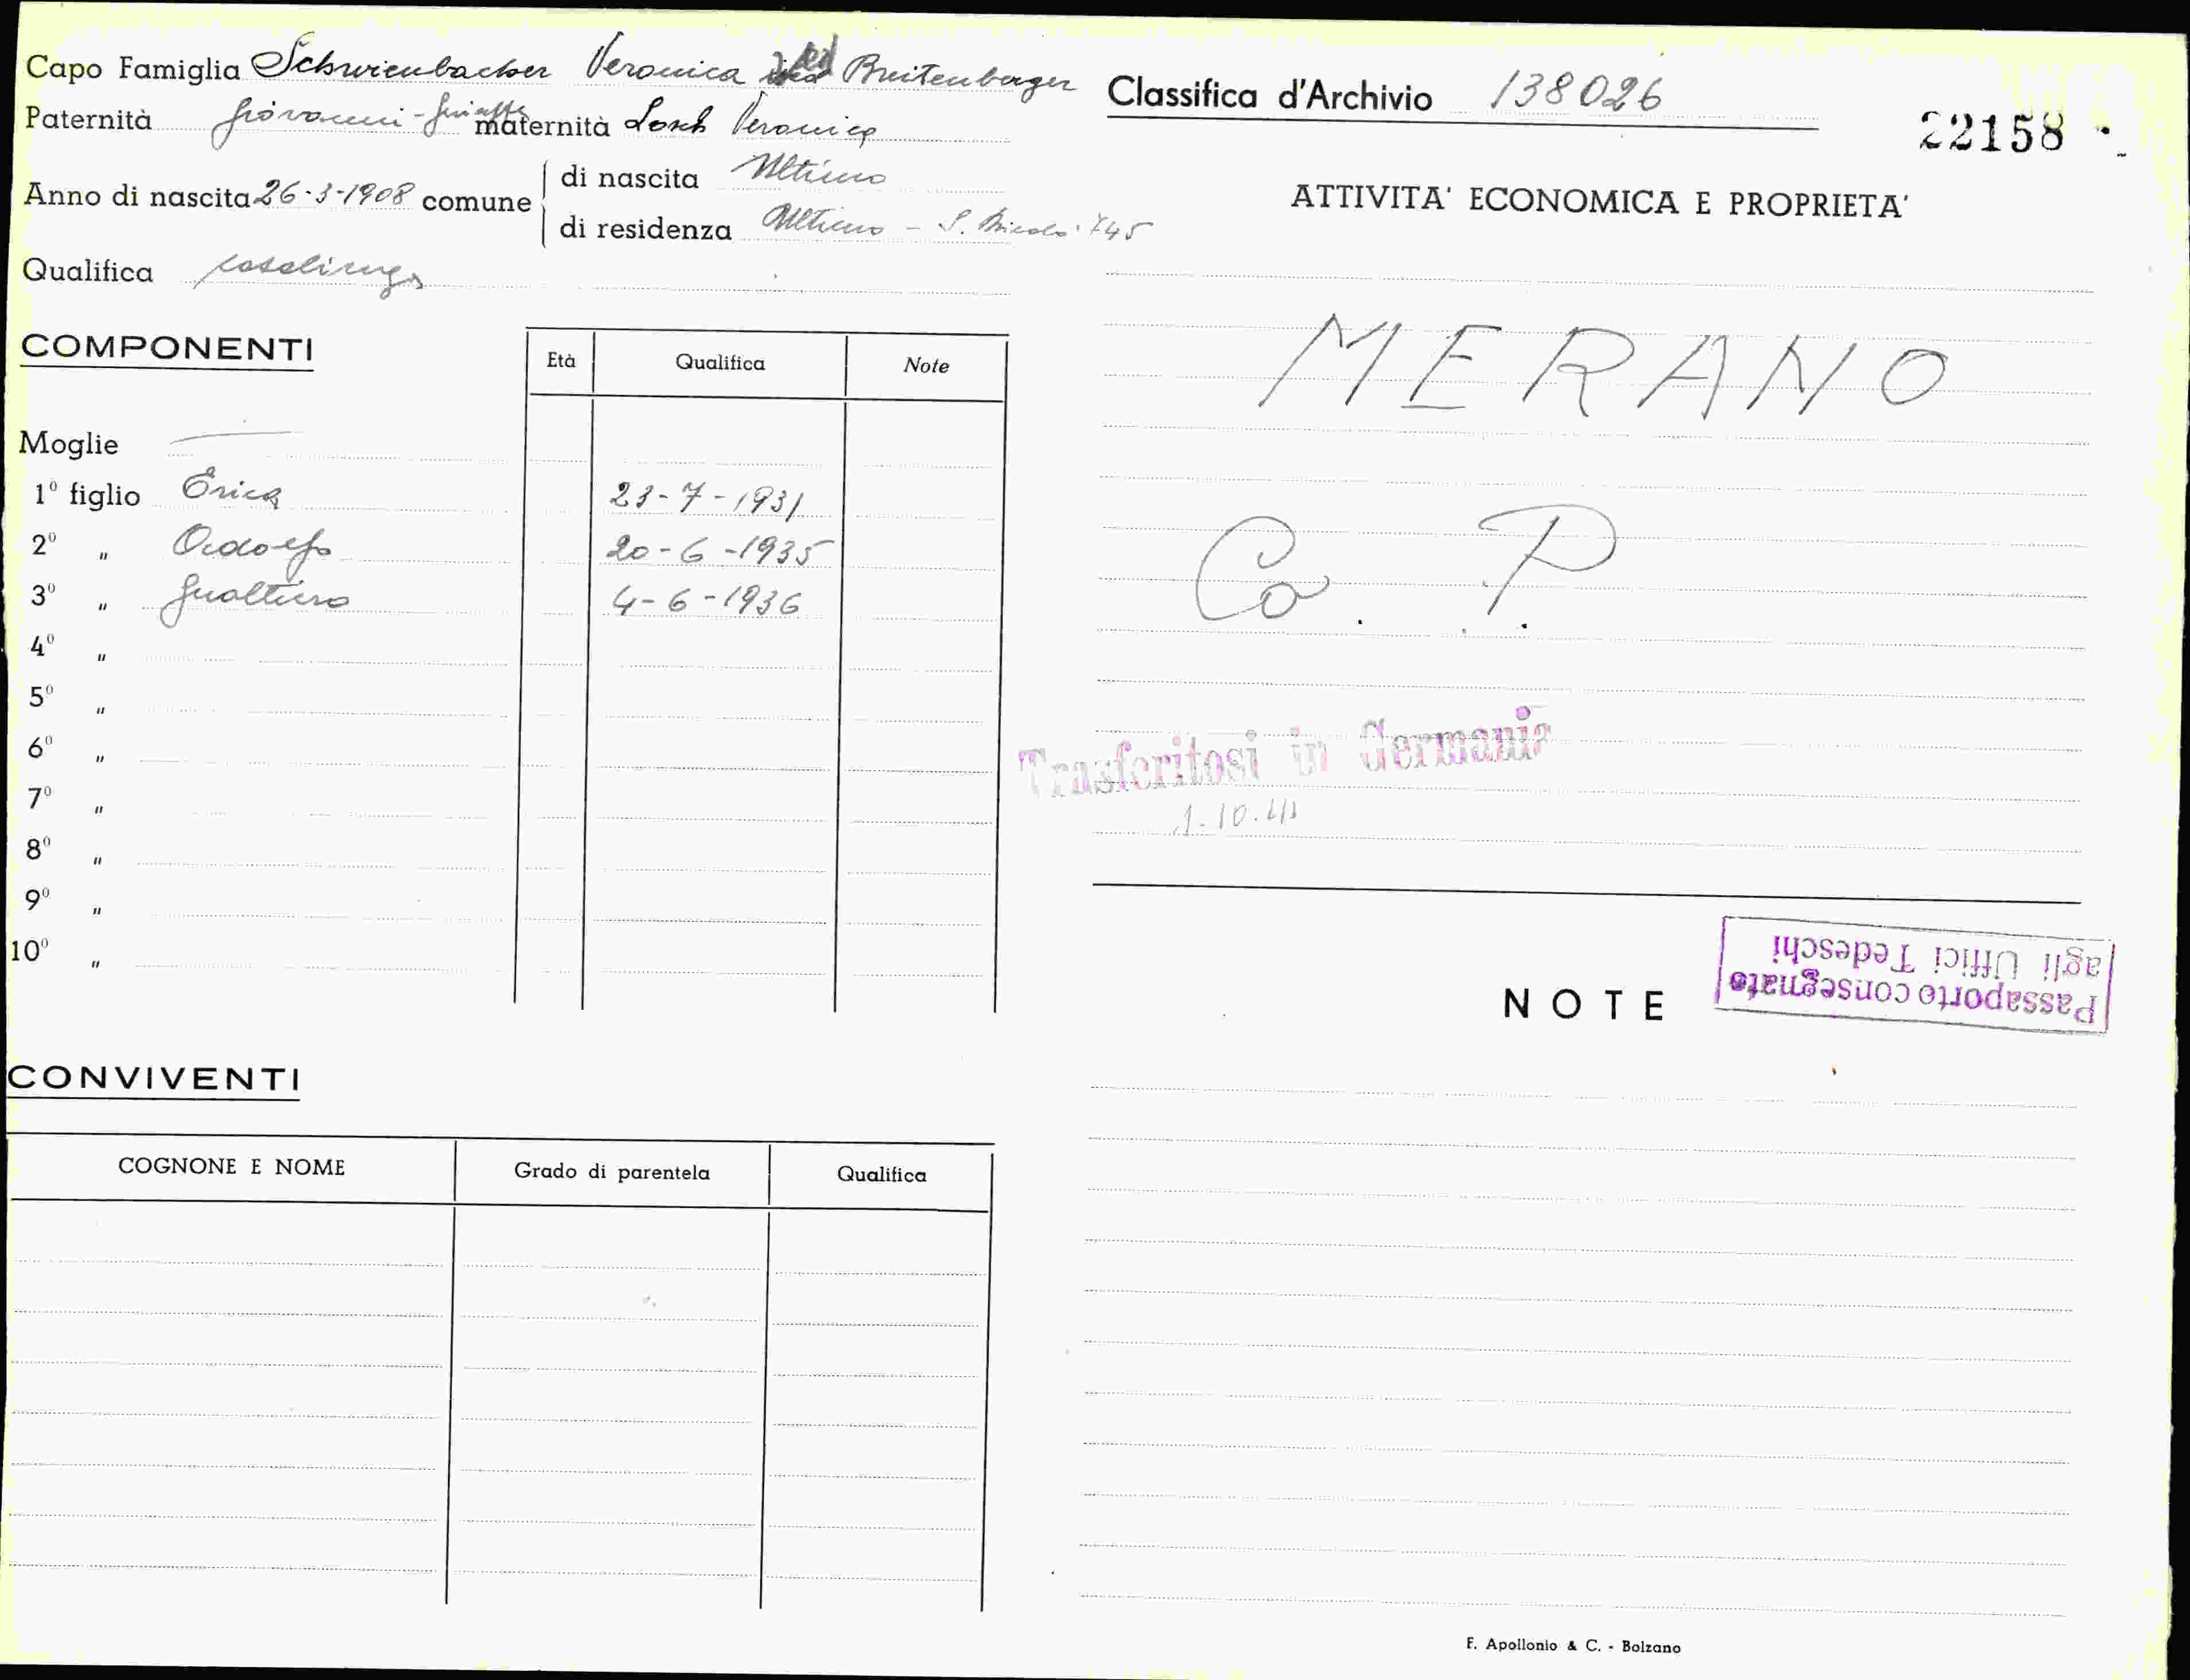 Capo Famiglia Schwienbacher Veronica ved Breitenberger
Paternità Giovanni - Giuseppe maternità Losch Veronica
Anno di nascita 26-3-1908 comune
di nascita Ultimo
di residenza Ultimo - S. Nicolò 745
Qualifica casalinga
COMPONENTI
Età Qualifica Note
Moglie —
1º figlio Erica 23-7-1931
2º " Oidolfo 20-6-1935
3º " Gualtiero 4-6-1936
4º "
5º "
6º "
7º "
8º "
9º "
10º "
CONVIVENTI
COGNONE E NOME Grado di parentela Qualifica
Classifica d'Archivio 138026
22158
ATTIVITA' ECONOMICA E PROPRIETA'
MERANO
Co. P.
Trasferitosi in Germania
1-10.41
NOTE
Passaporto consegnato
agli Uffici Tedeschi
F. Apollonio & C. - Bolzano